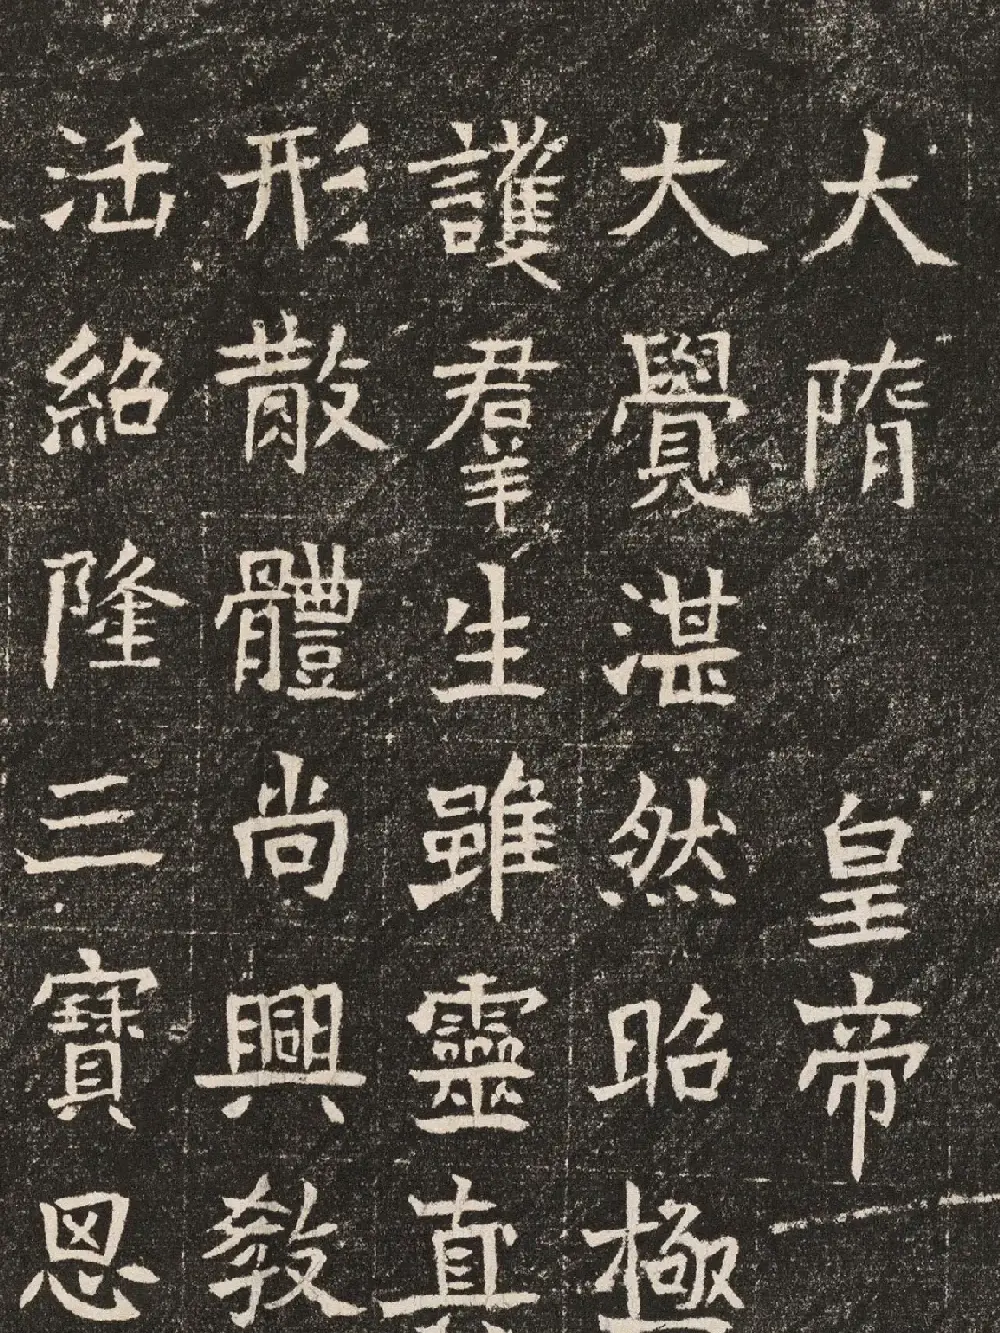 大隋皇帝
大覺湛然昭極
護羣生雖靈真
形散體尚興教
活紹隆三寶恩